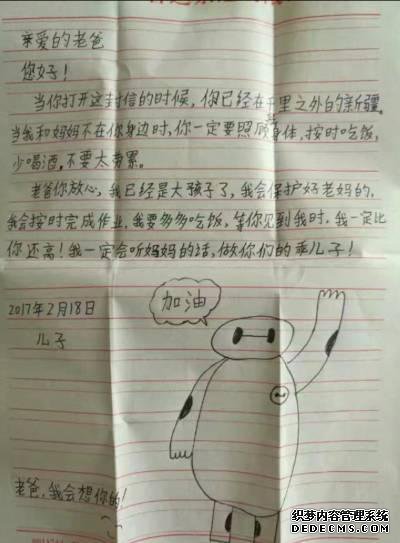 亲爱的老爸
您好！
当你打开这封信的时候，你已经在千里之外的新疆。
当我和妈妈不在你身边时，你一定要照顾身体，按时吃饭，
少喝酒，不要太劳累。
老爸你放心，我已经是大孩子了，我会保护好老妈的，
我会按时完成作业，我要多多吃饭，等你见到我时，我一定比
你还高！我一定会听妈妈的话，做你们的乖儿子！
加油
2017年2月18日
儿子
老爸，我会想你的！
织梦内容管理系统
DEDECMS.COM